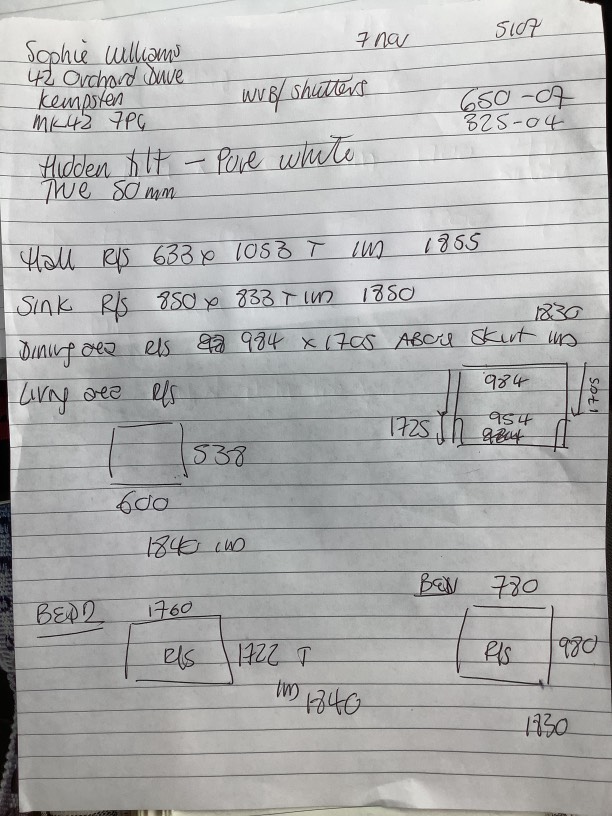 7 nov 5107
Sophie Williams
42 Orchard Drive
Kempston
MK42 7PG
WVB/ Shutters
650-07
325-04
Hidden tilt - Pure white
TWE 50mm
Hall R/S 633 x 1053 T IM 1855
Sink R/S 850 x 833 T IM 1850
Dining area R/S 984 x 1705 Above Skirt IM 1830
Living area R/S
984
1705
1725
954
538
600
1840 IM
BED 2 1760
R/S 1722 T
IM 1840
Bed 780
R/S 980
1830